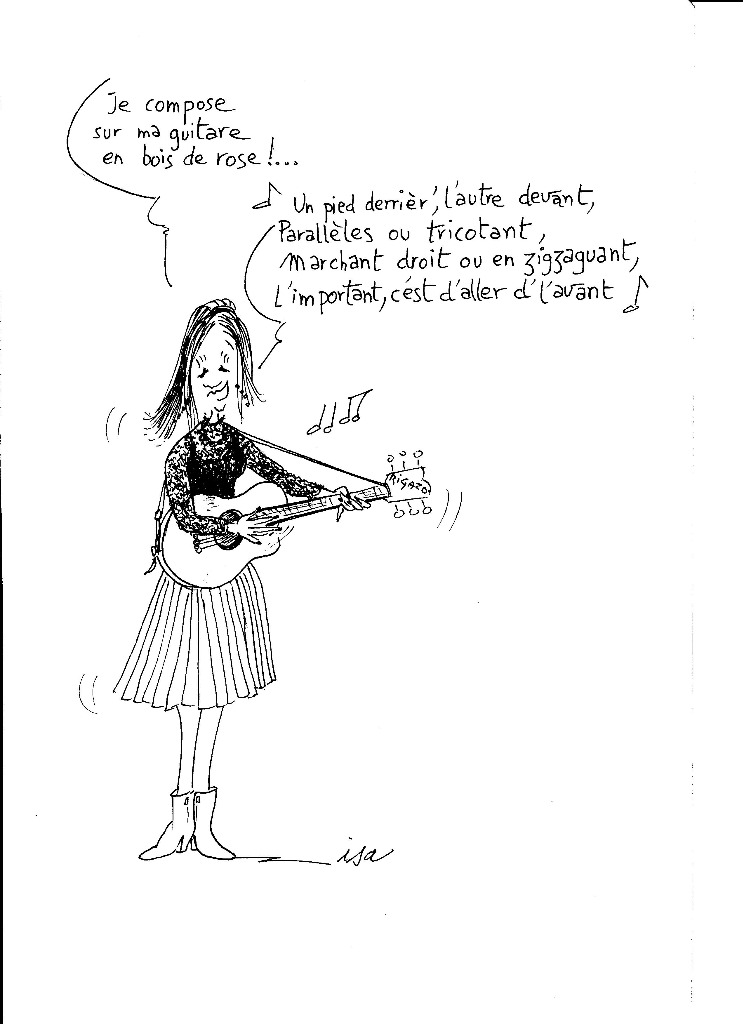 Je compose
sur ma guitare
en bois de rose !...
Un pied derrièr', l'autre devant,
Parallèles ou tricotant,
Marchant droit ou en zigzaguant,
L'important, c'est d'aller d'l'avant
isa